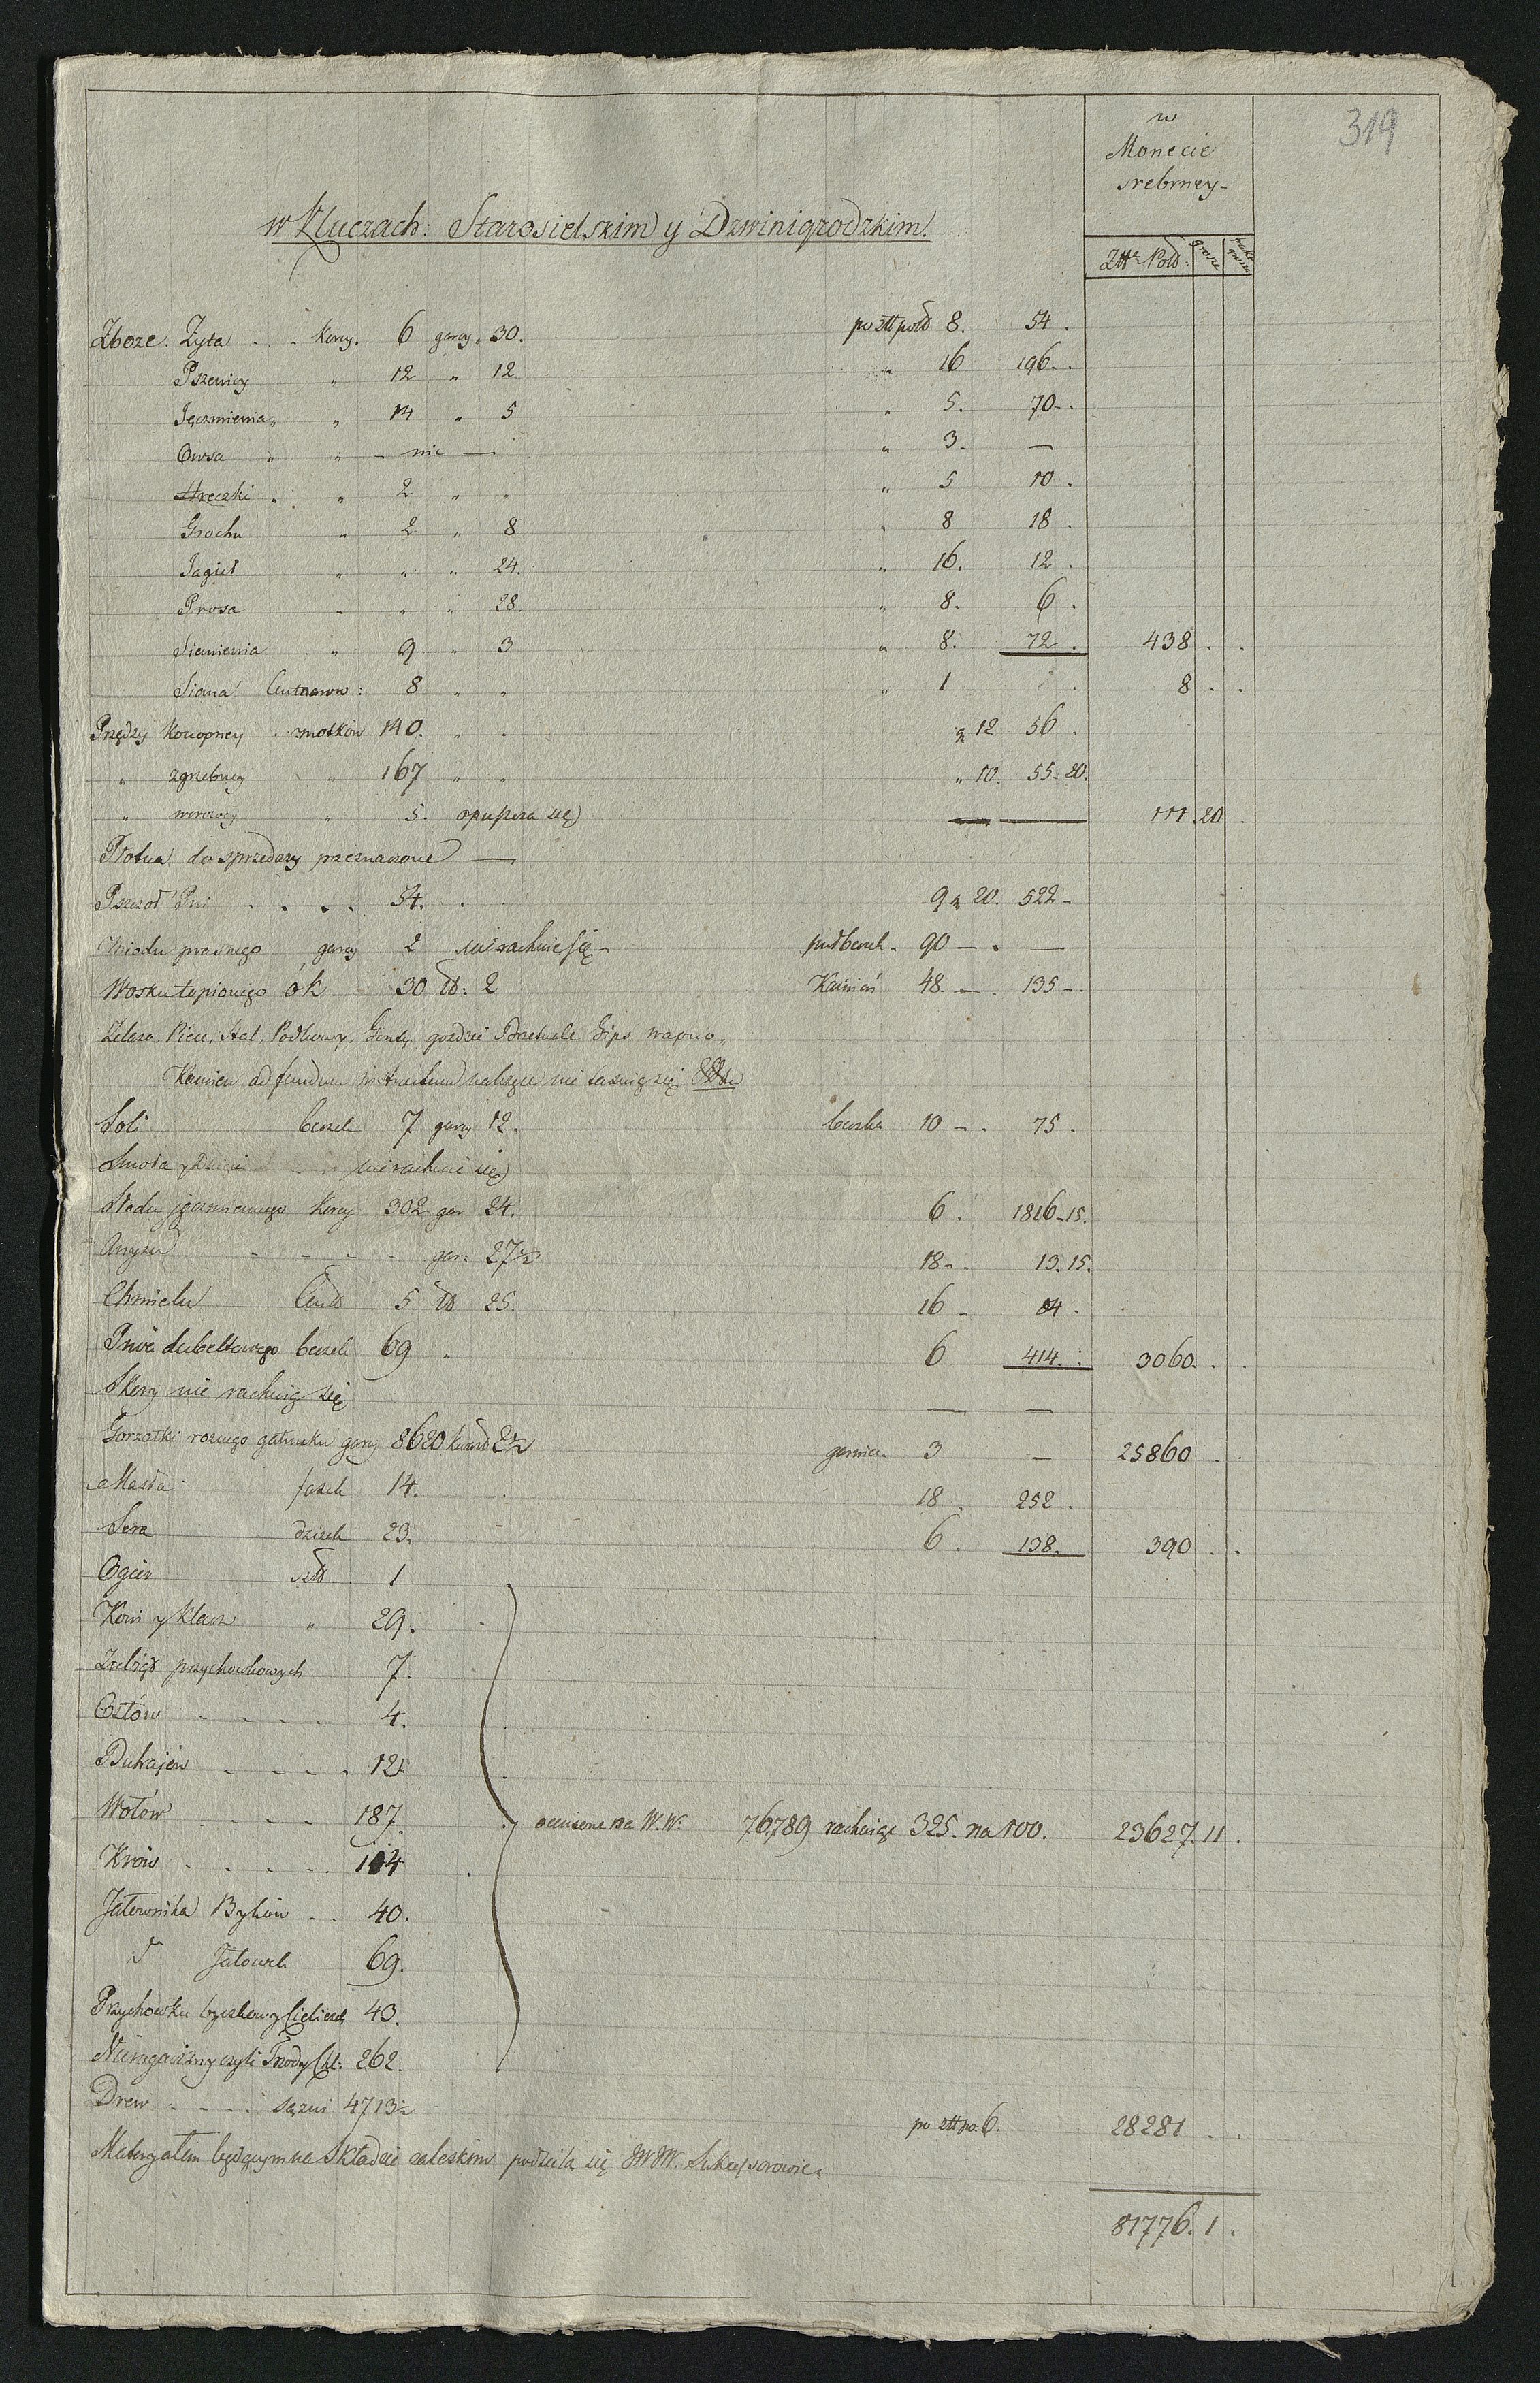 319
w
Monecie
srebrney-
w Kluczach: Starosielskim y Dzwinigrodzkim.
Złte Pold: grosze
Zboze. Zyta . . Korcy. 6 garcy „ 30. po złł pold 8. 54.
Pszenicy „ 12 „ 12 „ 16 196.
Jęczmienia „ „ 14 „ 5 „ 5. 70-.
Owsa „ „ - nic — „ 3. —
Hreczki . „ 2 „ „ „ 5 10.
Grochu „ 2 „ 8 „ 8 18.
Jagieł „ „ „ 24. „ 16. 12.
Prosa „ „ „ 28. „ 8. 6.
Siemienia „ 9 „ 3 „ 8. 72. 438 . .
Siana Centnarow: 8 „ „ „ 1 . 8 . .
Przędzy Konopney . motków 140. „ . a 12 56.
„ zgrzebney „ 167 „ „ „ 10. 55. 20.
„ „ 5. opuszcza się — — 111. 20.
Płotna do sprzedazy przeznaczone —
Pszczoł Pni . . . . 54. . 9 a 20. 522-
Miodu przasnego garcy 2 nierachuie się - 90 - . —
Wosku topionego ók 30 łł: 2 Kamień 48 — 135 -
Zelazo, Piece, Stal, Podkowy, Gonty, gozdzie Gips wapno „
Kamien ad fundum instructum nalezące nie szacuią się
Soli beczek 7 garcy 12. beczka 10 - . 75.
Smoła y nierachuie się
Słodu jęczmiennego Korcy 302 gar 24. 6. 1816-15.
Anyżu - - - - gar: 27½ 18-. 13.15.
Chmielu 5 łł 25. 16 - 84.
Piwa dubeltowego beczek 69 . 6 414. 3060 . .
Skory nie rachuią się — —
Gorzałki roznego gatunku garcy 8620 kwart 2½ garniec. 3 — 25860 . .
Masła fasek 14. 18. 252.
Sera dzieżek 23. 6. 138. 390 . .
Ogier szt 1
Koni y Klacz „ 29.
Zrebiąt przychowkowych 7.
Osłów - - - - 4.
Buhajów - - - - 12.
Wołow - - - 187. ocenione na W.W: 76,789 rachuiąc 325. na 100. 23627. 11.
Krów . . . . 114
Jałownika Byków - . 40.
d Jałowek 69.
Przychowku byczkow y Cieliczek 43.
Nierogacizny czyli Trzody Chl: 262.
Drew - - - sązni 4713½ po złł po. 6. 28281 . .
Materyałem będącym na Składzie zaleskim podzielą się JWW. Sukcessorowie.
81776. 1.